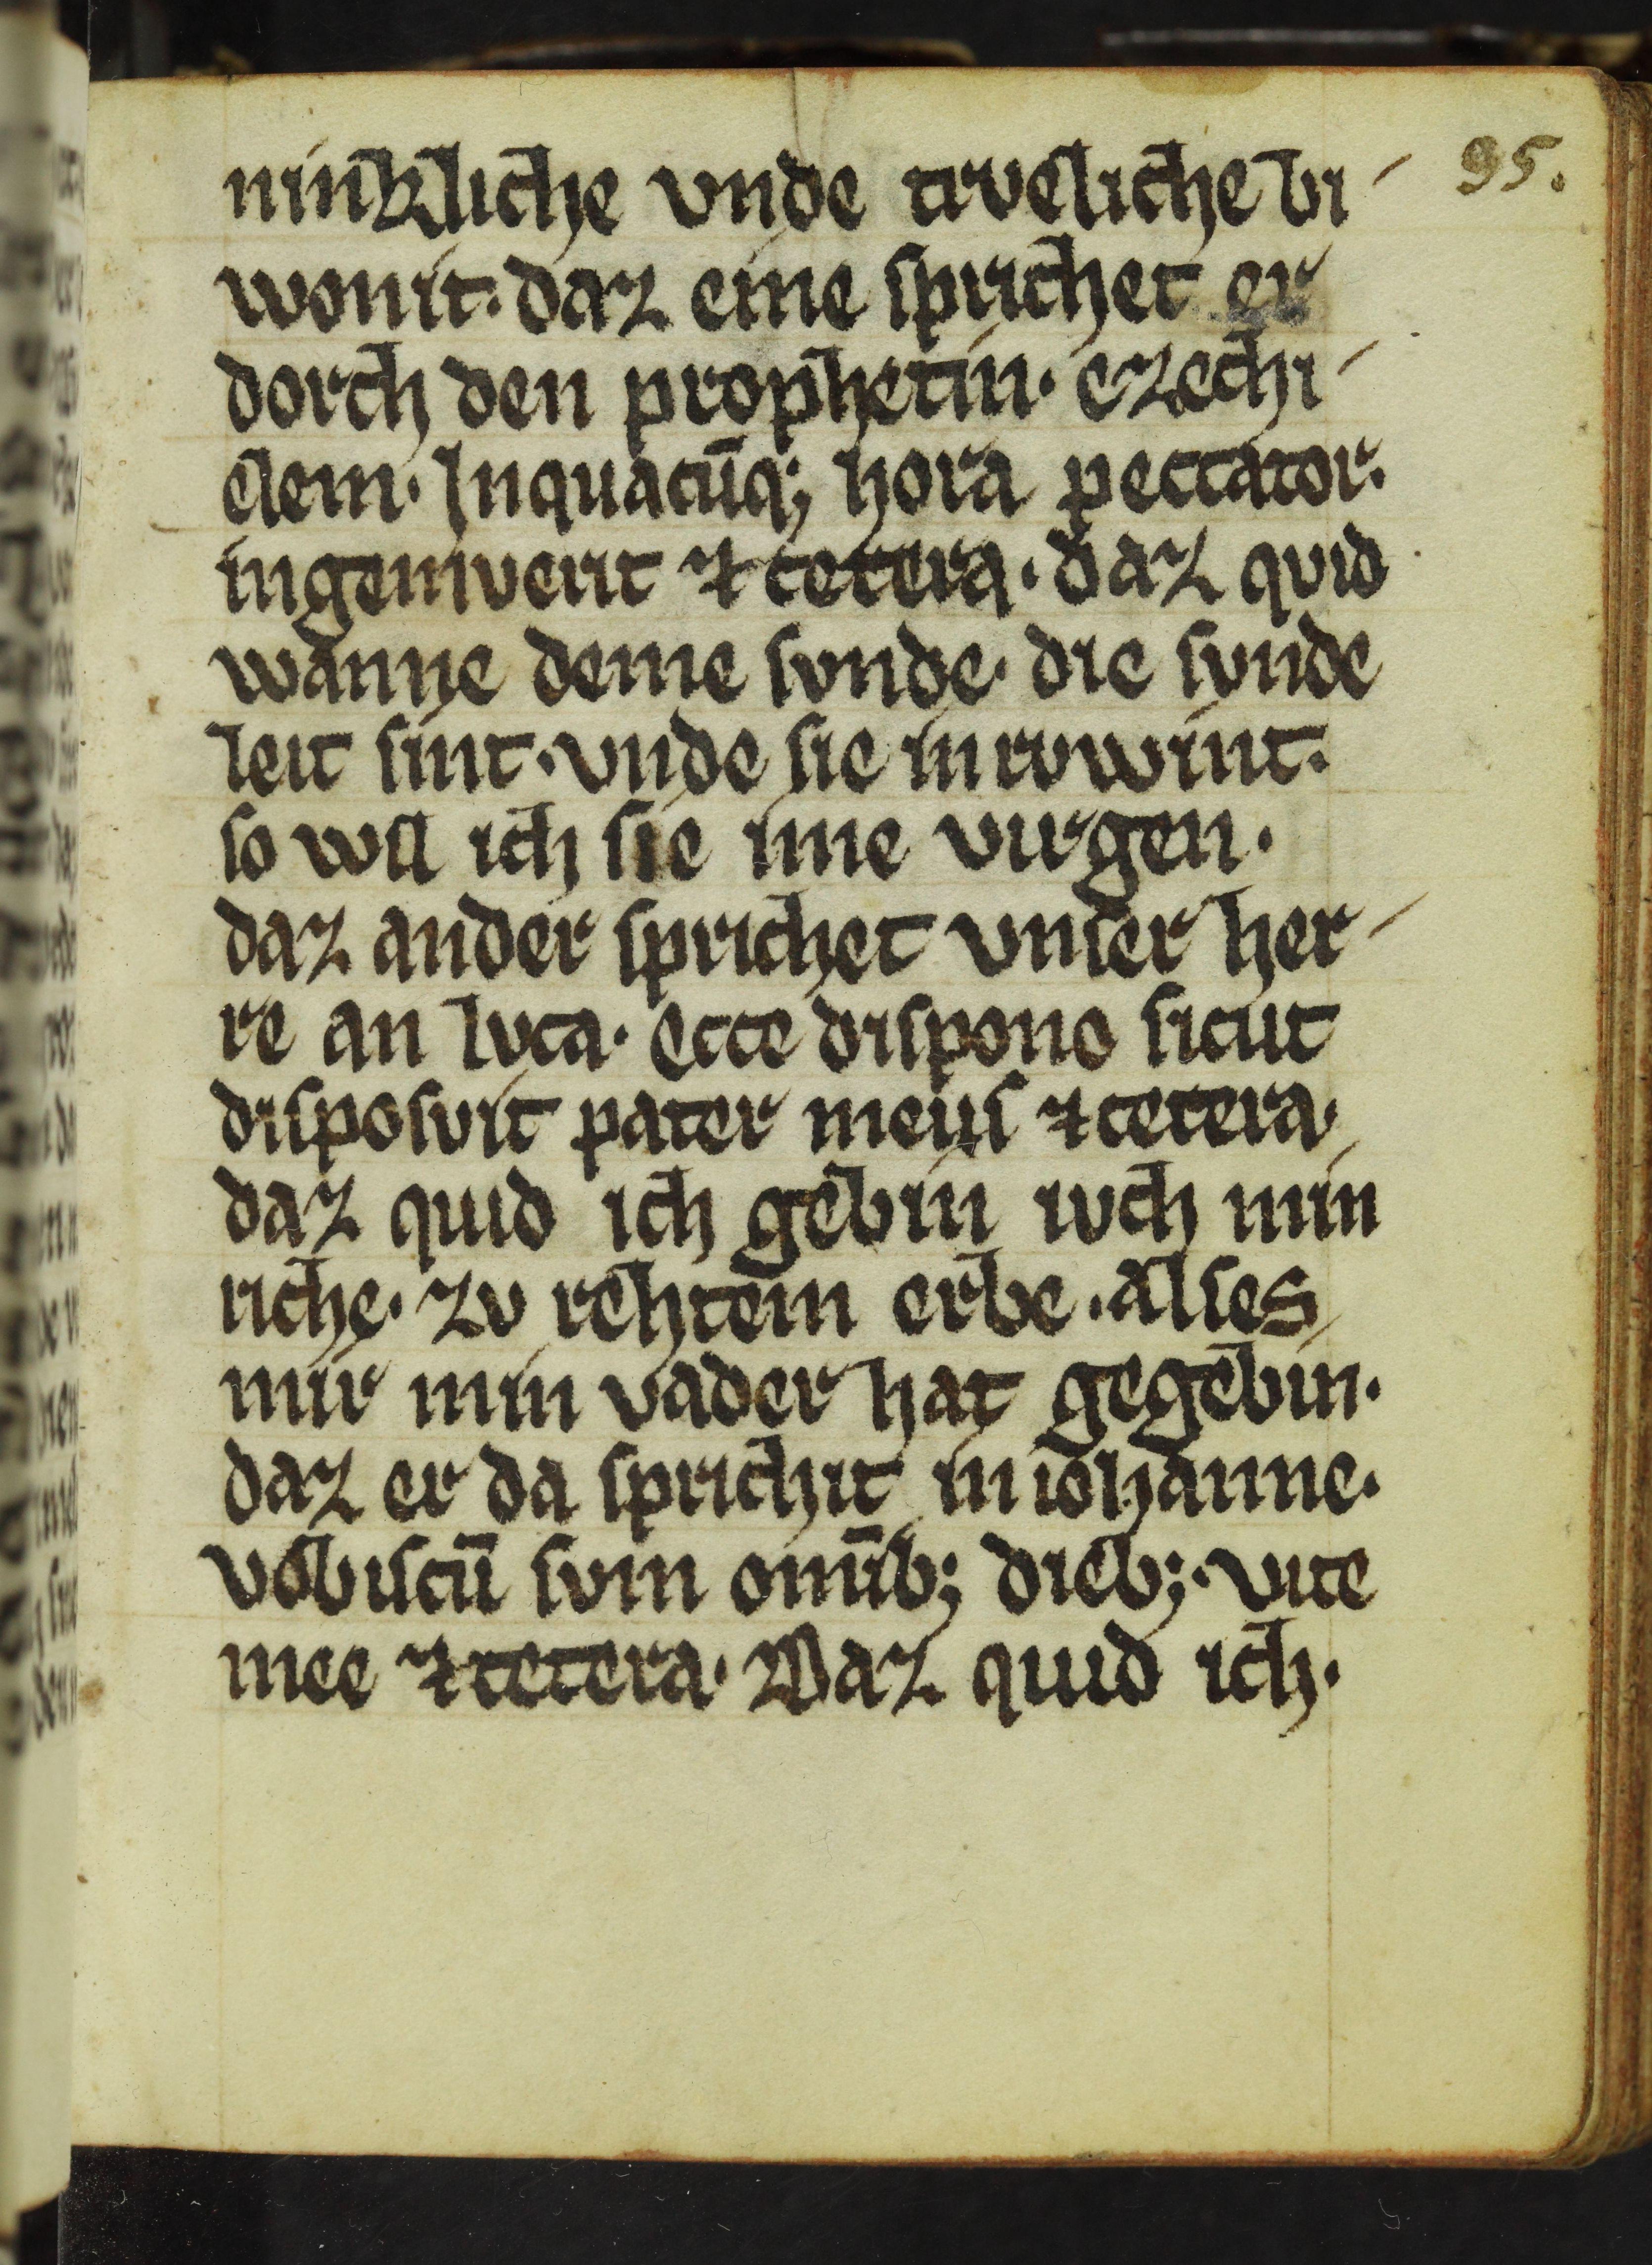 ninkliche vnde trveliche bi- 95.
wonit. daz eine sprichet er
dorch den prophetin. ezechi-
elem. Inquacūq; hora peccator.
ingemuerit ⁊ cetera. daz qvid
wanne deme svnde. die svnde
leit sint. vnde sie in rvwint.
so wil ich sie ime uirgen.
daz ander sprichet vnser her-
re an lvca. Ecce dispono sicut
disposvit pater meus ⁊ cetera.
daz quid ich gebin ivch min
riche. zv rehtem erbe. als es
mir min vader hat gegebin.
daz er da sprichit in iohanne.
vobiscū svm omīb; dieb;. vite
mee ⁊ cetera. Waz quid ich.